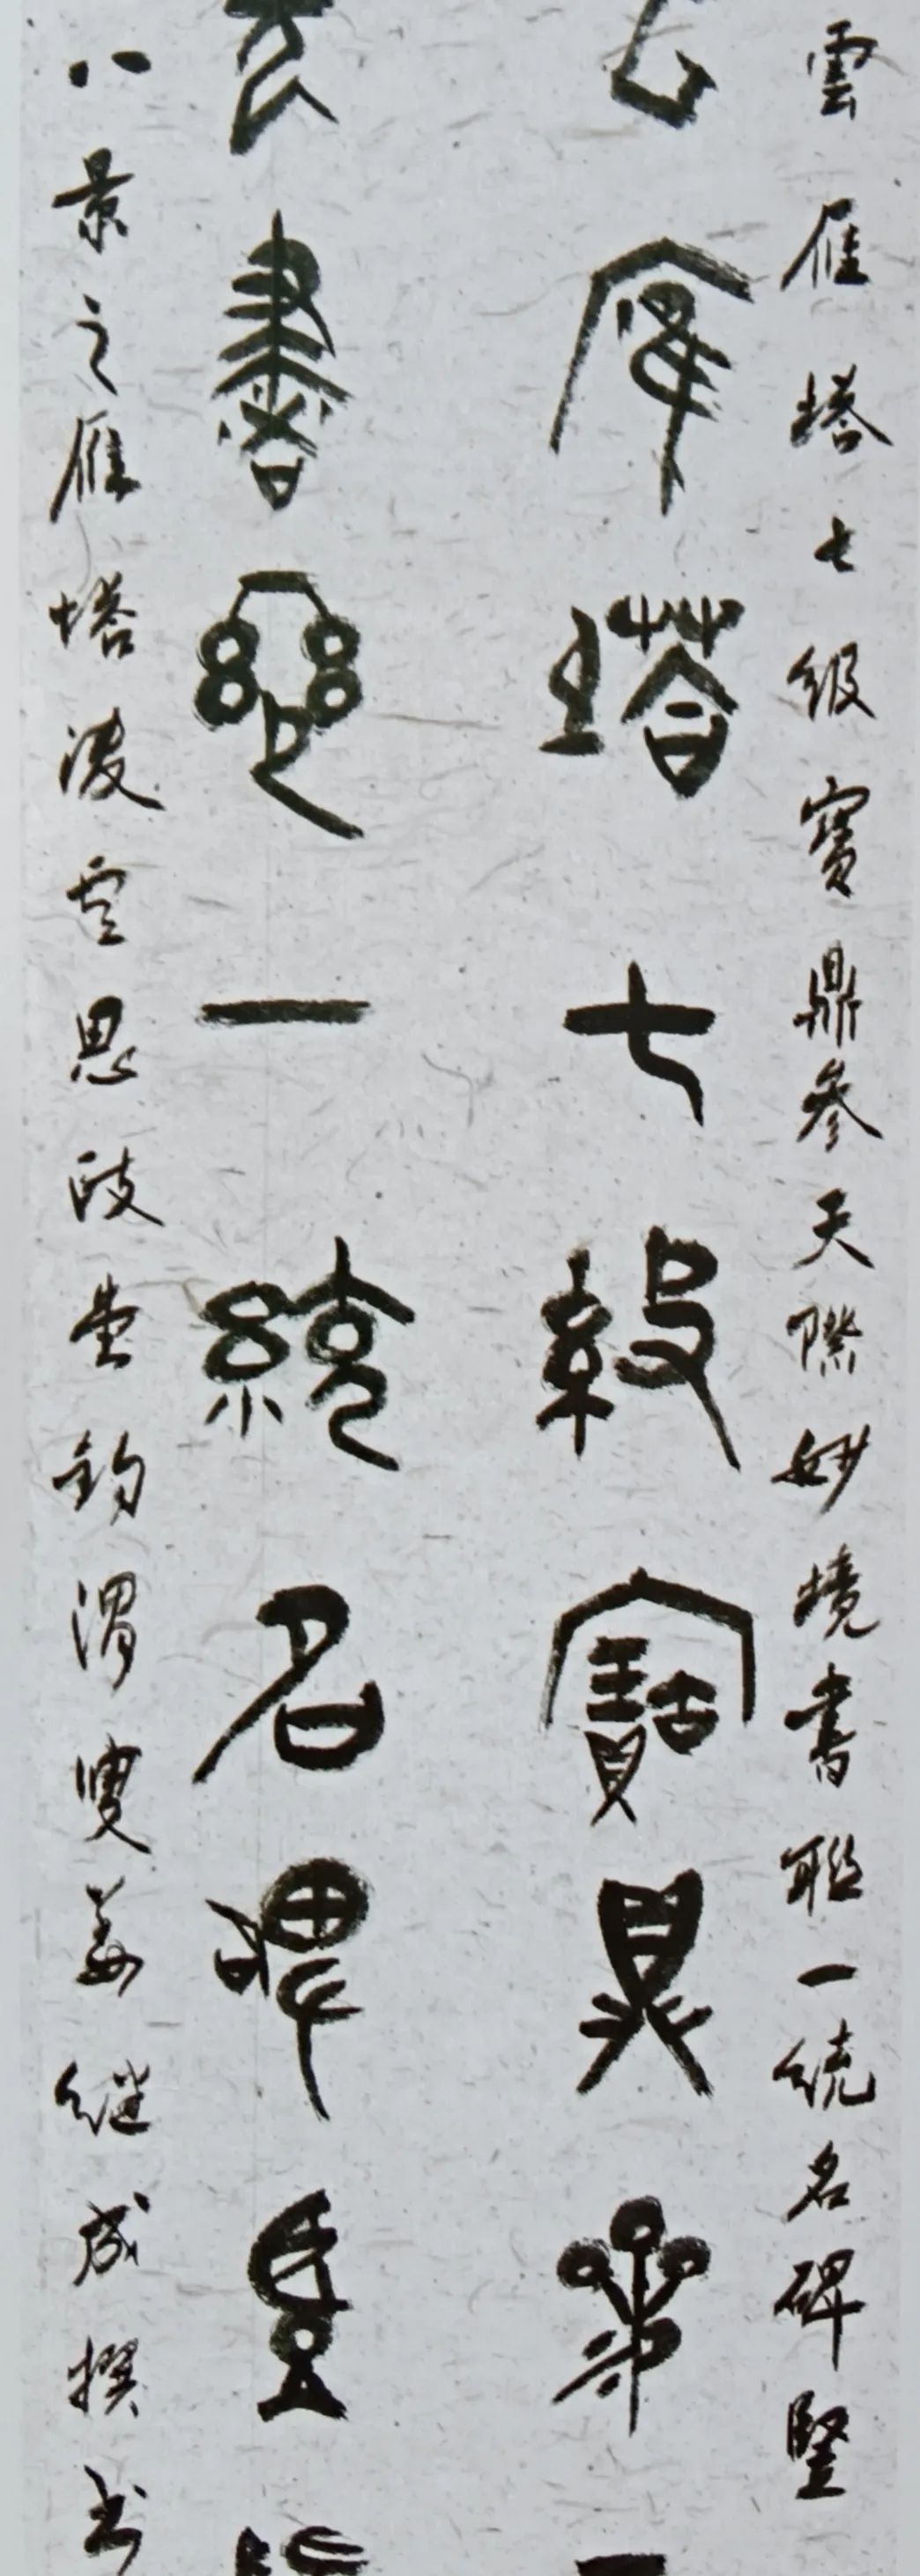 雲雁塔七級寶鼎參天際妙境書聯一統名碑豎
雁塔七級寶鼎參
書聯一統名碑豎
八景之雁塔凌雲思堂鈞渭叟姜继成撰书